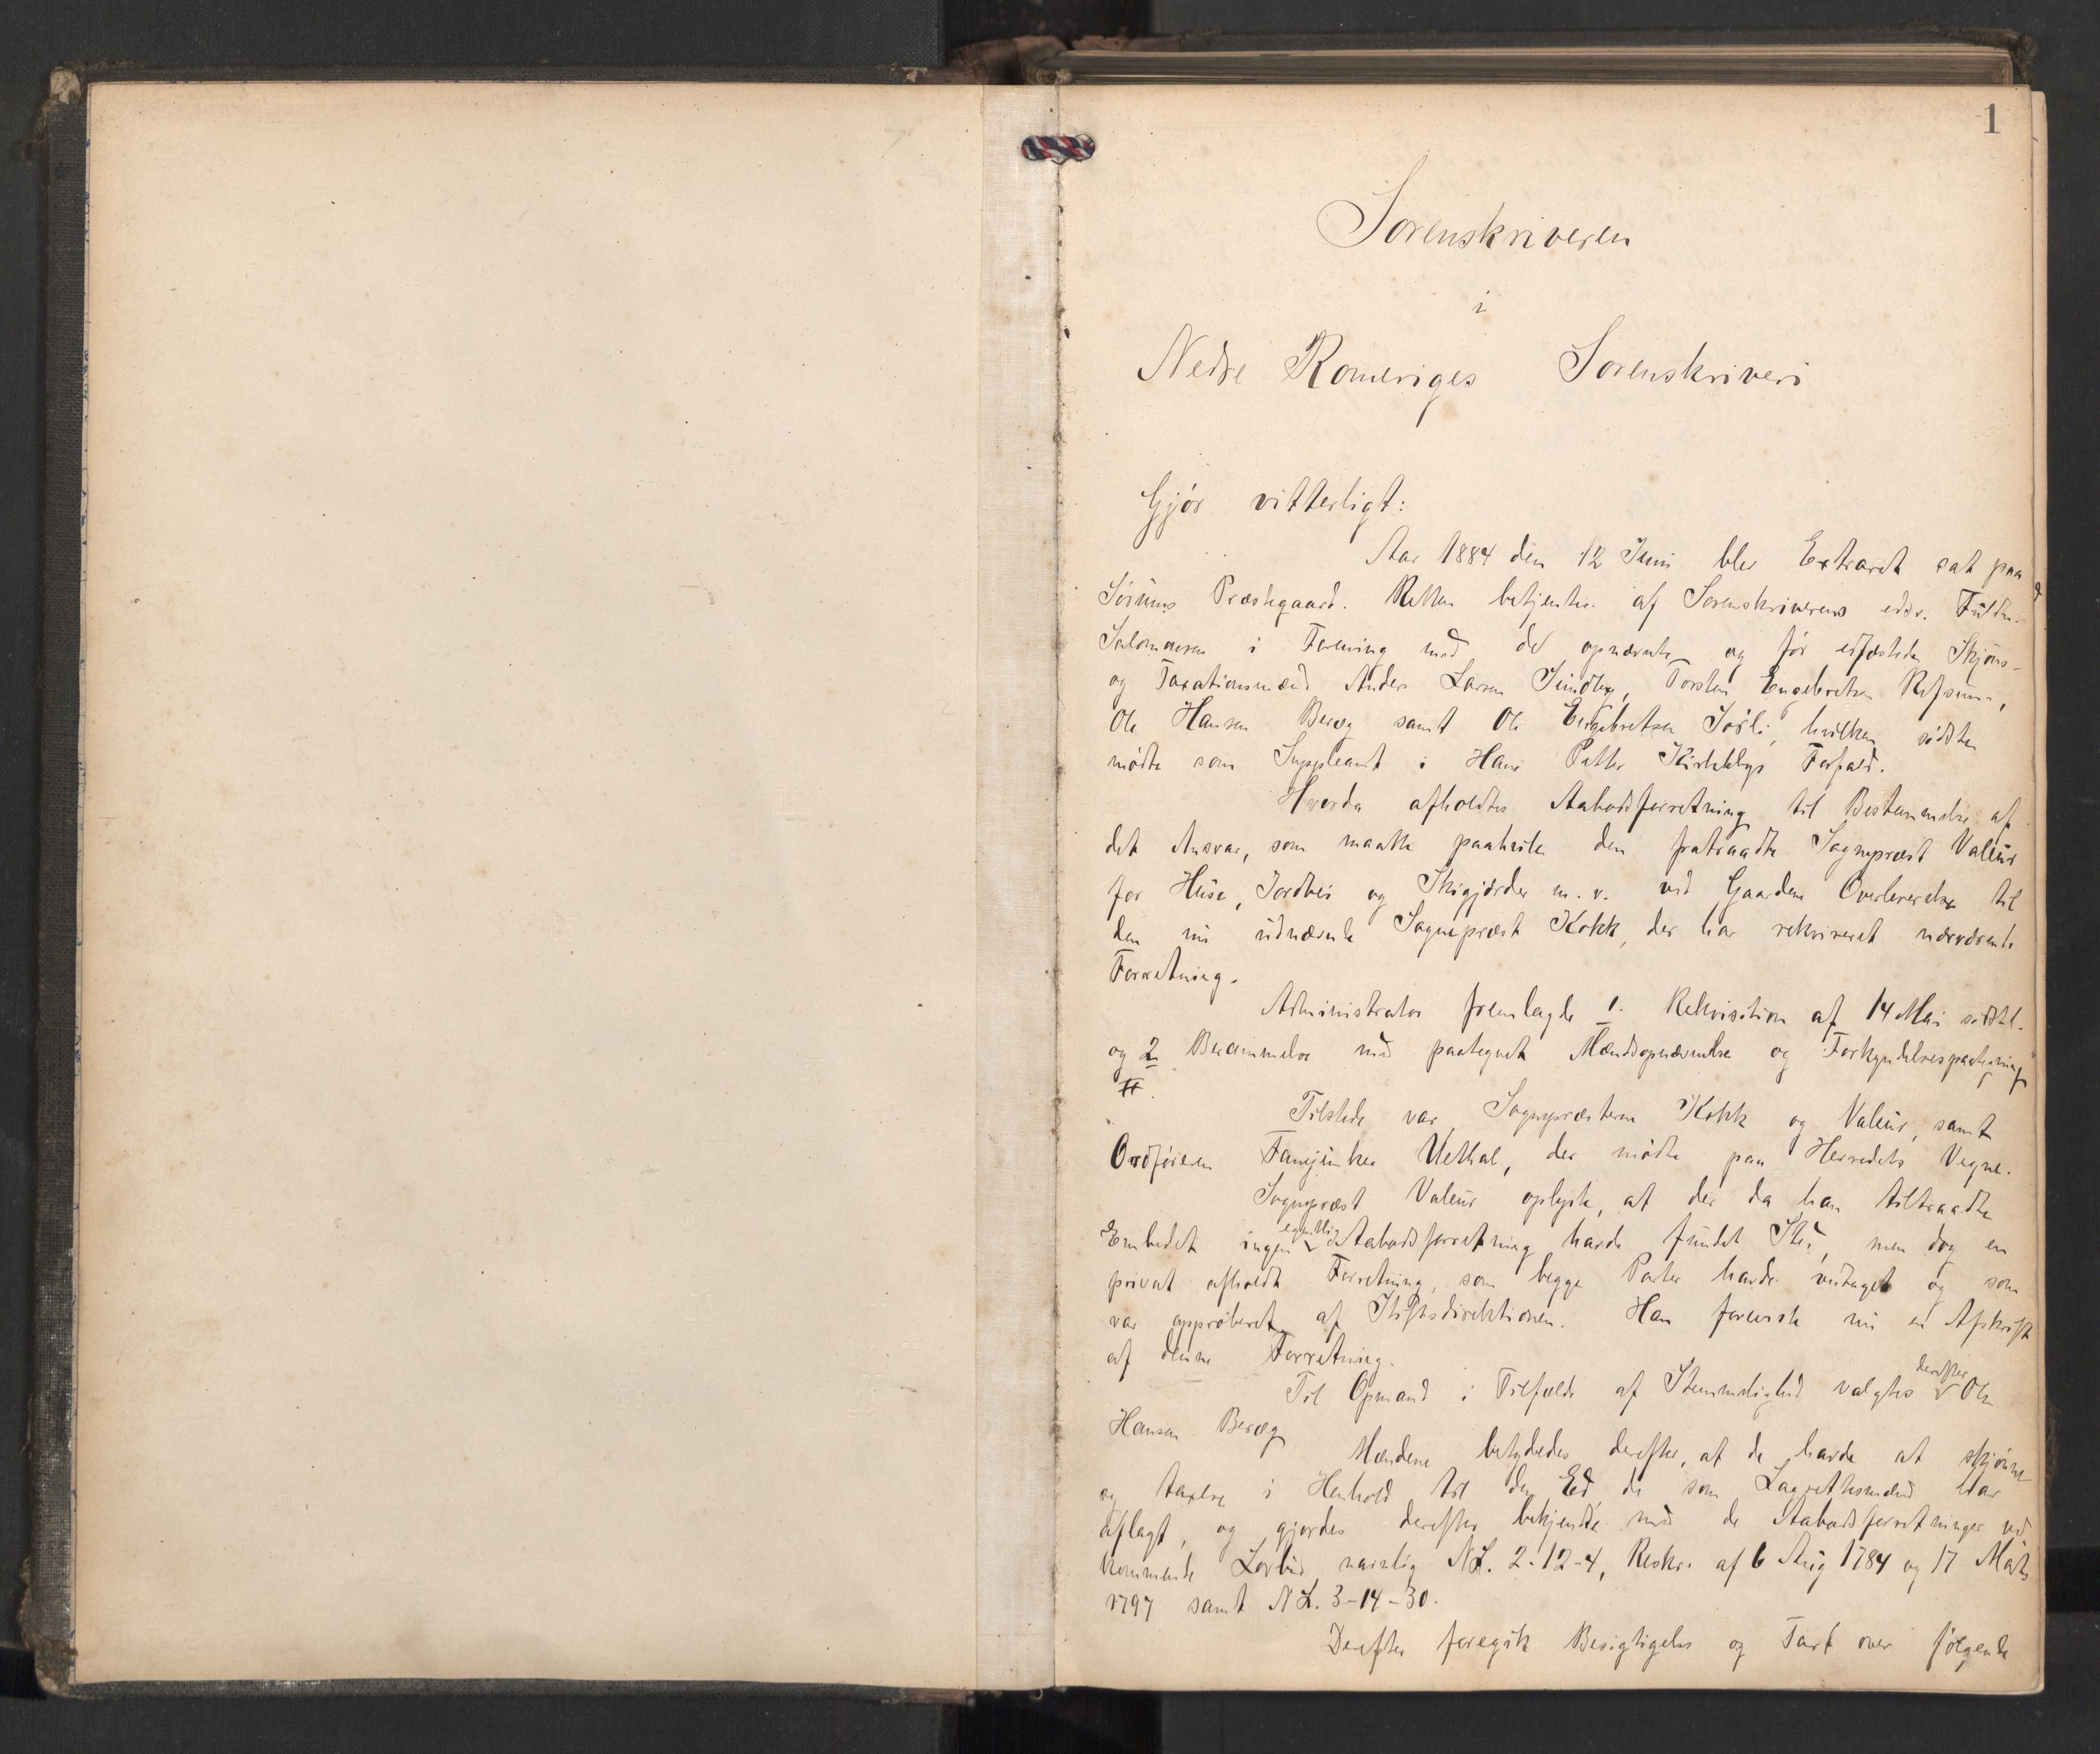 1
Sorenskriveren
i
Nedre Romeriges Sorenskriveri
Gjör vitterligt:
Aar 1884 den 12 Juni blev Extraret sat paa
Sörums Præstegaard. Retten betjentes af Sorenskriverens edsv. Fuldm.
Salomonsen i Forening med de opnævnte og för edfæstede Skjöns-
og Taxationsmænd Anders Larsen Sundby, Torsten Engebretsen Refsum,
Ole Hansen Bereg samt Ole Engebretsen Sörli, hvilken sidste
mödte som Suppleant i Hans Petter Kirkebys Forfald.
Hvorda afholdtes Aabodsforretning til Bestemmelse af
det Ansvar, som maatte paahvile den fratraadte Sognepræst Valeur
for Huse, Jordvei og Skigjærder m. v. ved Gaardens Overleverelse til
den nu udnævnte Sognepræst Kokk, der har rekvireret nærværende
Forretning.
Administrator fremlagde 1. Rekvisition af 14 Mai sidstl.
og 2 Berammelse med paategnet Mændsopnævnelse og Forkyndelsespaategning
Tilstede var Sognepræsterne Kokk og Valeur, samt
Ordföreren Fanejunker Uethal, der mödte paa Herredets Vegne.
Sognepræst Valeur oplyste, at der da han tiltraadte
Embedet ingen egentlig Aabodsforretning havde fundet Sted, men dog en
privat afholdt Forretning, som begge Parter havde vedtaget og som
var approberet af Stiftsdirektionen. Han foreviste nu en Afskrift
af denne Forretning.
Til Opmand i Tilfælde af Stemmelighed valgtes derefter Ole
Hansen Bereg
Mændene betydedes derefter, at de havde at skjönne
og taxere i Henhold til den Ed de som Lagrettesmænd har
aflagt, og gjordes derefter bekjendte med de Aabodsforretninger ved
kommende Lovbud navnlig NL. 2-12-4, Reskr. af 6 Aug 1784 og 17 Marts
1797 samt NL. 3-14-30.
Derefter foregik Besigtigelse og Taxt over fölgende